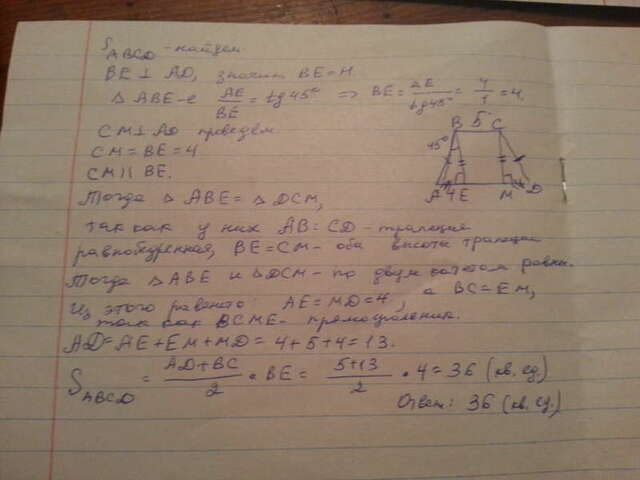 S ABCD - найдем
BE ⊥ AD, значит BE = H.
Δ ABE - е AE/BE = tg 45° => BE = AE/tg45° = 4/1 = 4.
CM ⊥ AD проведем
B 5 C
CM = BE = 4
45°
CM || BE.
A 4 E M D
Тогда Δ ABE = Δ DCM,
так как у них AB = CD - трапеция
равнобедренная, BE = CM - оба высоты трапеции
Тогда Δ ABE и Δ DCM - по двум катетам равны.
Из этого равенства: AE = MD = 4, а BC = EM,
так как BCME - прямоугольник.
AD = AE + EM + MD = 4 + 5 + 4 = 13.
S ABCD = (AD + BC)/2 • BE = (5 + 13)/2 • 4 = 36 (кв. ед)
Ответ: 36 (кв. ед.)